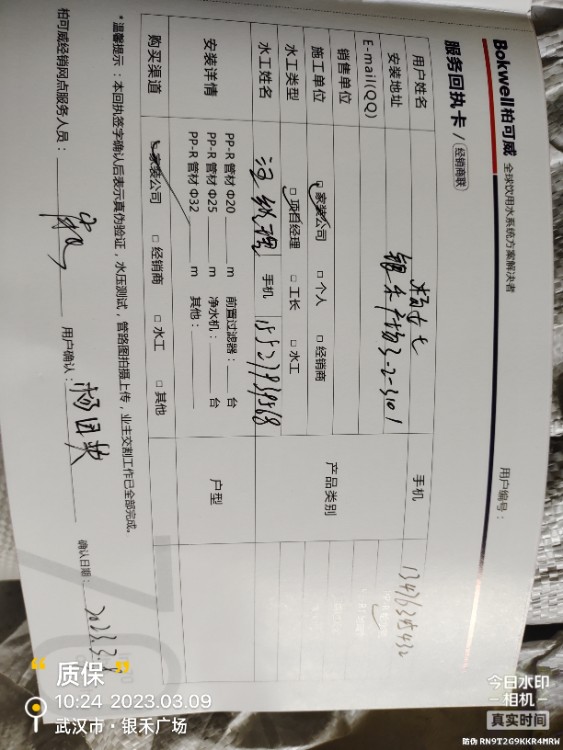 Bokwell柏可威 全球饮用水系统方案解决者
服务回执卡 / 经销商联
用户编号：
用户姓名 杨女士 手机
安装地址 银禾广场3-2-3101
E-mail(QQ)
销售单位 产品类别
施工单位 家装公司 □ 个人 □ 经销商
水工类型 □ 项目经理 □ 工长 □ 水工
水工姓名 汪经理 手机
安装详情 PP-R 管材 Φ20 m 前置过滤器： 台 户型
PP-R 管材 Φ25 m 净水机： 台
PP-R 管材 Φ32 m 其他：
购买渠道 家装公司 □ 经销商 □ 水工 □ 其他
*温馨提示：本回执签字确认后表示真伪验证，水压测试，管路图拍摄上传，业主交割工作已全部完成。
柏可威经销网点服务人员： 用户确认： 确认日期：
质保
10:24 2023.03.09
武汉市·银禾广场
今日水印
-相机-
真实时间
防伪 RN9T2G9KKR4MRW